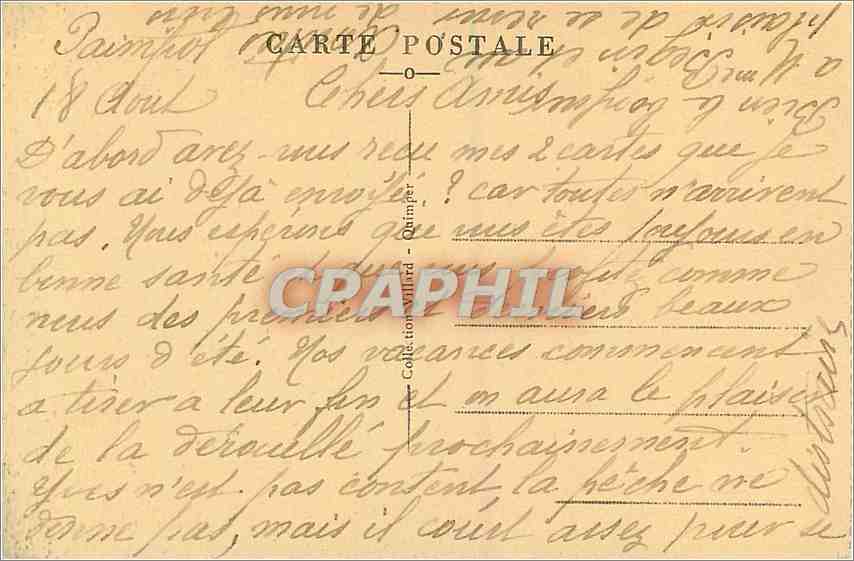 CARTE POSTALE
Paimpol
18 Aout
Chers Amis
D'abord avez-vous recu mes 2 cartes que je
vous ai déjà envoyée ? car toutes n'arrivent
pas. Nous espérons que vous êtes toujours en
bonne santé que vous profitez comme
nous des premiers et derniers beaux
jours d'été. Nos vacances commencent
a tirer a leur fin et on aura le plaisir
de la prochainement.
Yves n'est pas content la pêche ne
donne pas, mais il court assez pour se
distraire
Bien le bonjour
a Mme
plaisir de se revoir
Collection Villard - Quimper
CPAPHIL